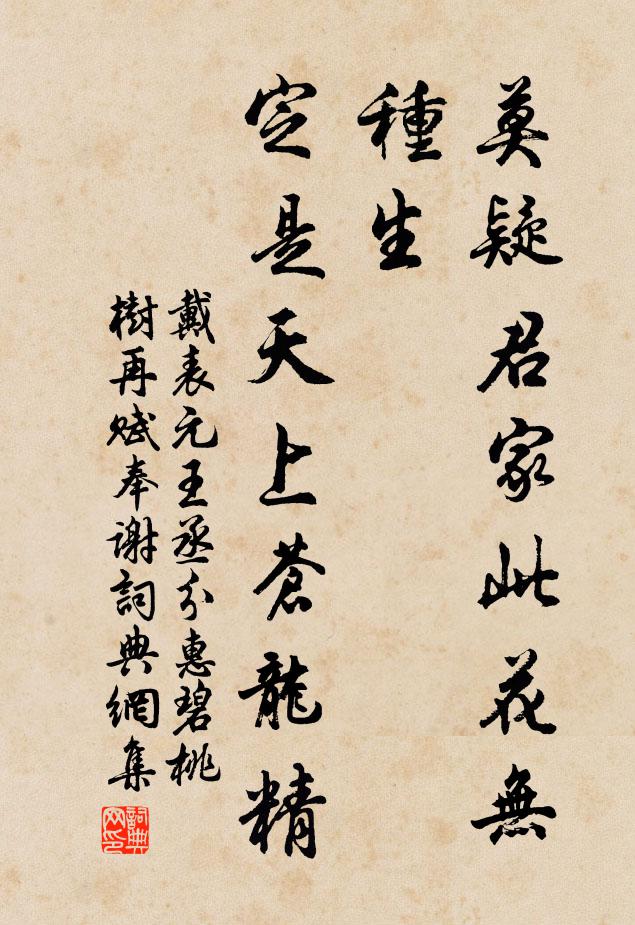 莫疑君家此花無
種生
定是天上蒼龍精
戴表元王丞分惠碧桃
樹再賦奉謝詞典網集
詞典
网印